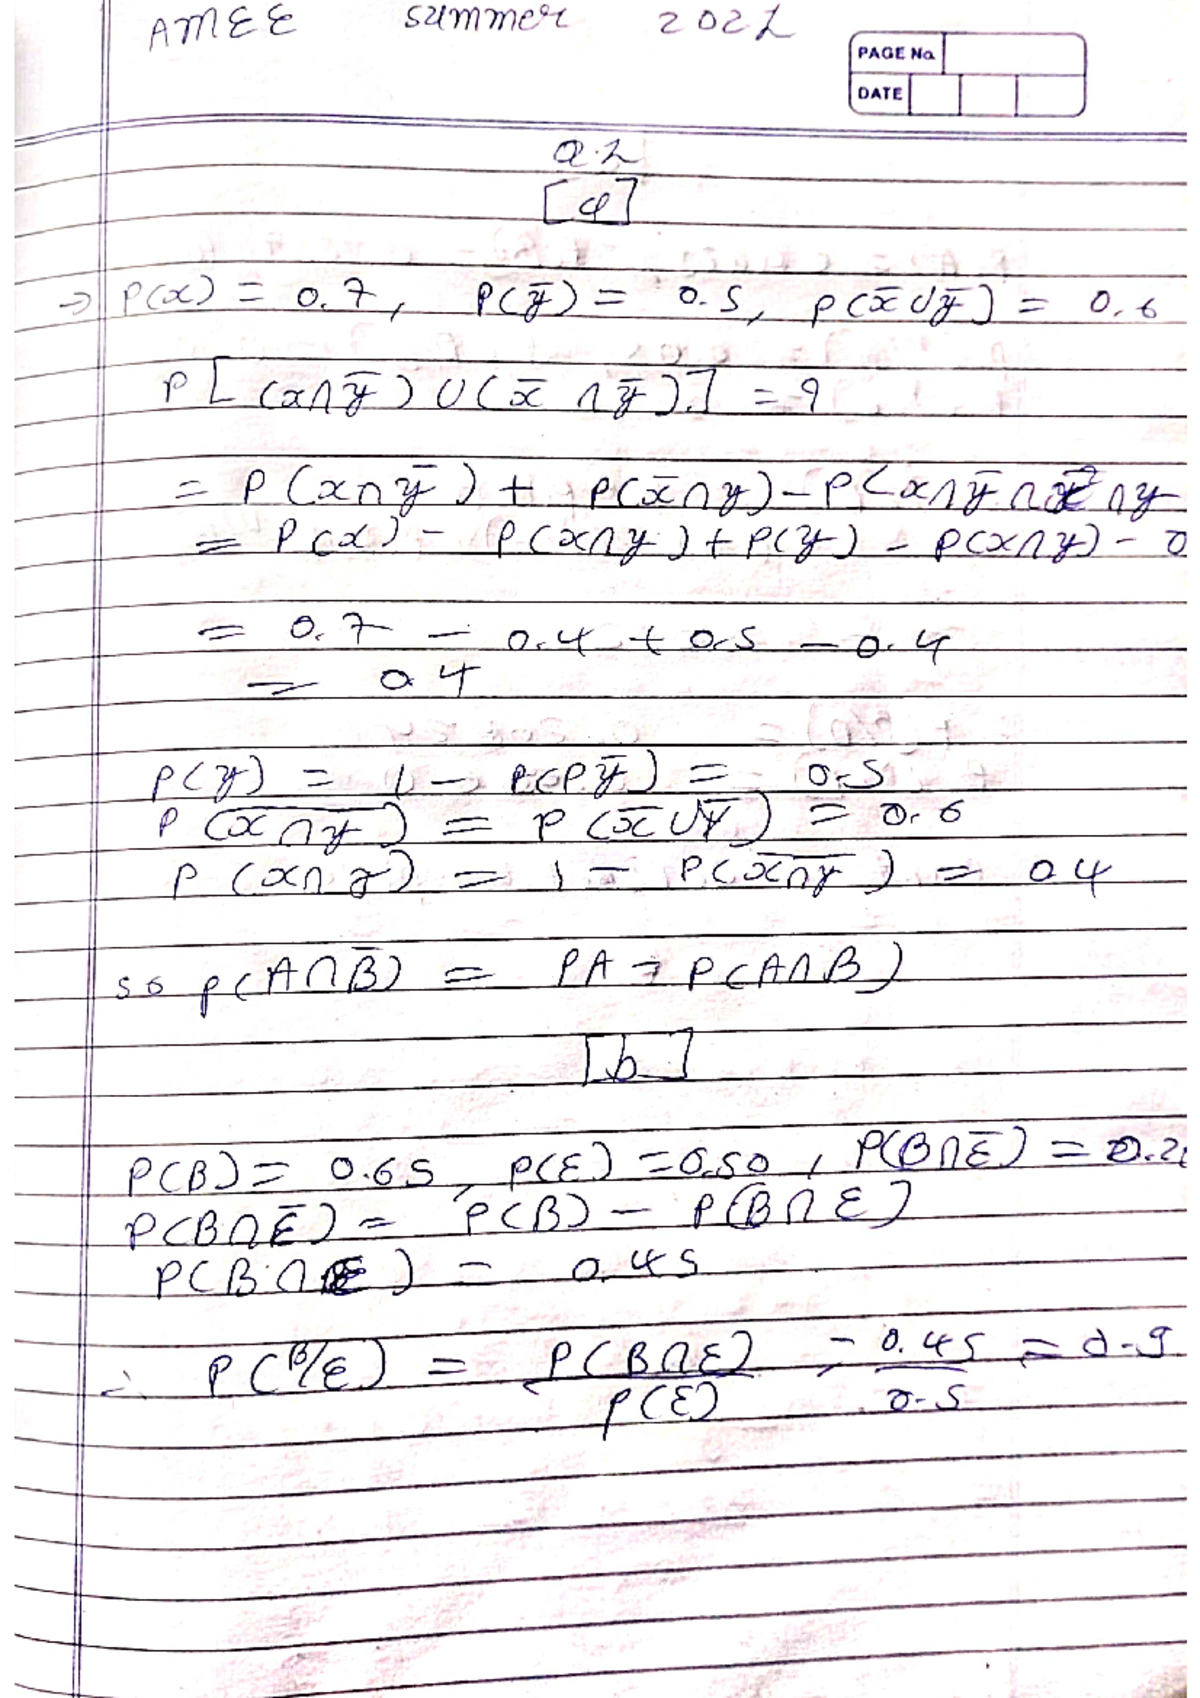 AMEE summer 2021
PAGE No.
DATE
Q.1
[a]
⇒ P(x) = 0.7, P(ȳ) = 0.5, P(x̄ ∪ ȳ) = 0.6
P[(x∩ȳ) ∪ (x̄ ∩ ȳ)] = ?
= P(x∩ȳ) + P(x̄∩y) - P(x∩ȳ∩x̄∩y
= P(x) - P(x∩y) + P(y) - P(x∩y) - 0
= 0.7 - 0.4 + 0.5 - 0.4
= 0.4
P(y) = 1 - P(Pȳ) = 0.5
P(\overline{x∩y}) = P(x̄∪ȳ) = 0.6
P(x∩y) = 1 - P(\overline{x∩y}) = 0.4
so P(A∩B̄) = PA - P(A∩B)
[b]
P(B) = 0.65, P(E) = 0.50, P(B∩Ē) = 0.2
P(B∩Ē) = P(B) - P(B∩E)
P(B∩E) = 0.45
∴ P(B/E) = P(B∩E) = 0.45 = 0.9
P(E) 0.5